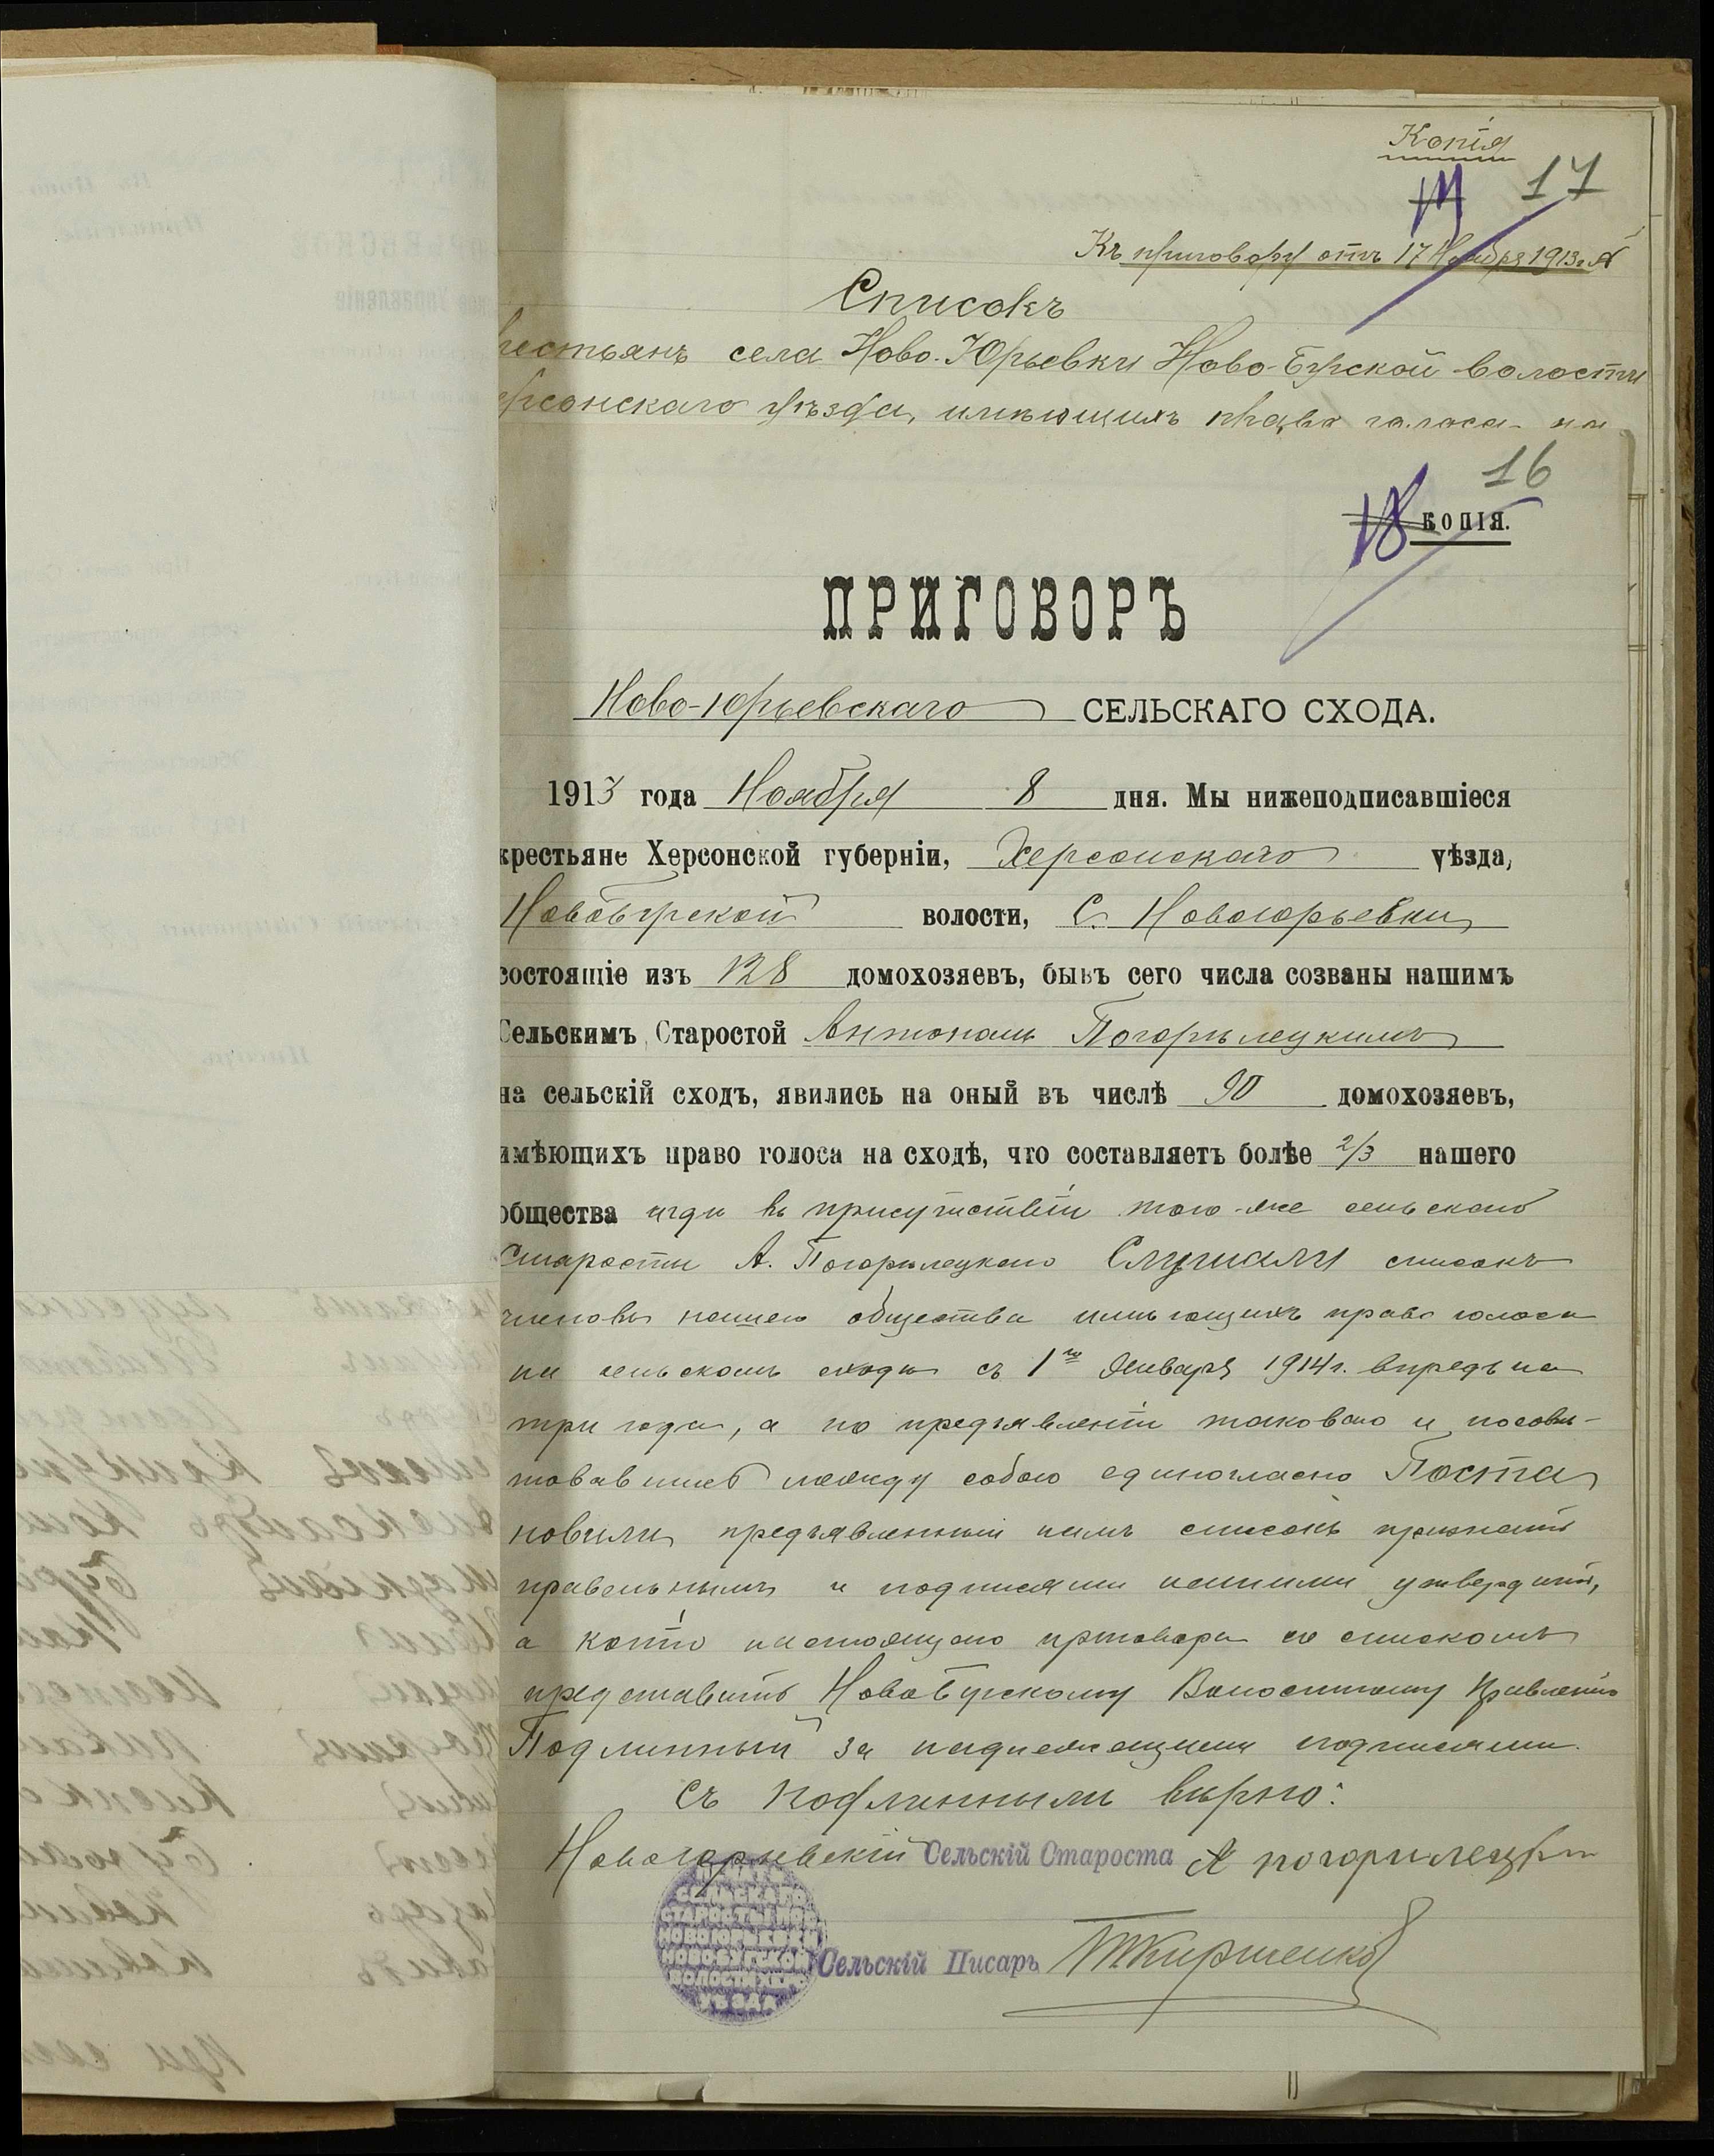 Копія
17
Къ приговору отъ 17 Ноября 1913 г.
Списокъ
рестьянъ села Ново-Юрьевки Ново-Бугской волости
ерсонскаго уѣзда, имѣющихъ право голоса на
16
18
КОПІЯ.
ПРИГОВОРЪ
Ново-Юрьевскаго СЕЛЬСКАГО СХОДА.
1913 года Ноября 8 дня. Мы нижеподписавшіеся
крестьяне Херсонской губерніи, Херсонскаго уѣзда,
Новобугской волости, С. Новоюрьевки
состоящіе изъ 128 домохозяевъ, бывъ сего числа созваны нашимъ
Сельскимъ Старостой Антономъ Погорѣлецкимъ
на сельскій сходъ, явились на оный въ числѣ 90 домохозяевъ,
имѣющихъ право голоса на сходѣ, что составляетъ болѣе 2/3 нашего
общества гдѣ въ присутствіи того-же сельскаго
Старосты А. Погорѣлецкаго Слушали списокъ
членовъ нашего общества имѣющихъ право голоса
на сельскомъ сходѣ съ 1го Января 1914 г. впредь на
три года, а по предъявленіи таковаго и посовѣ-
товавшись между собою единогласно Поста
новили предъявленный намъ списокъ признать
правельнымъ и подписями нашими утвердить,
а копію настоящаго приговора со спискомъ
представить Новобугскому Волостному Правленію
Подлинный за надлежащими подписями.
Съ подлиннымъ вѣрно:
Новоюрьевскій Сельскій Староста А Погорилецкій
СЕЛЬСКАГО
СТАРОСТЫ ПОС.
НОВОЮРЬЕВКИ
НОВОБУГСКОЙ
ВОЛОСТИ ХЕРС.
УѢЗДА
Сельскій Писарь